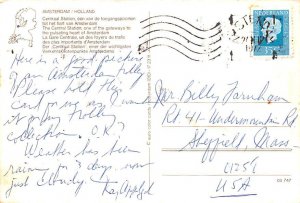 AMSTERDAM - HOLLAND
Centraal Station, één van de toegangspoorten
tot het hart van Amsterdam
The Central Station, one of the gateways to
the pulsating heart of Amsterdam
La Gare Centrale, un des foyers de trafic
des plus importants d'Amsterdam
Der „Central Station" einer der wichtigsten
Verkehrsknotenpunkte Amsterdams
NEDERLAND
Here is a good picture
of an Amsterdam trolley
Please hold this
card for me my
it for my trolley
collection. O.K?
Weather has been
rain for 3 days, now
just cloudy.
Mr Billy Farnham
Rd 41 - Undermountain Rd
Sheffield, Mass-
01257
USA